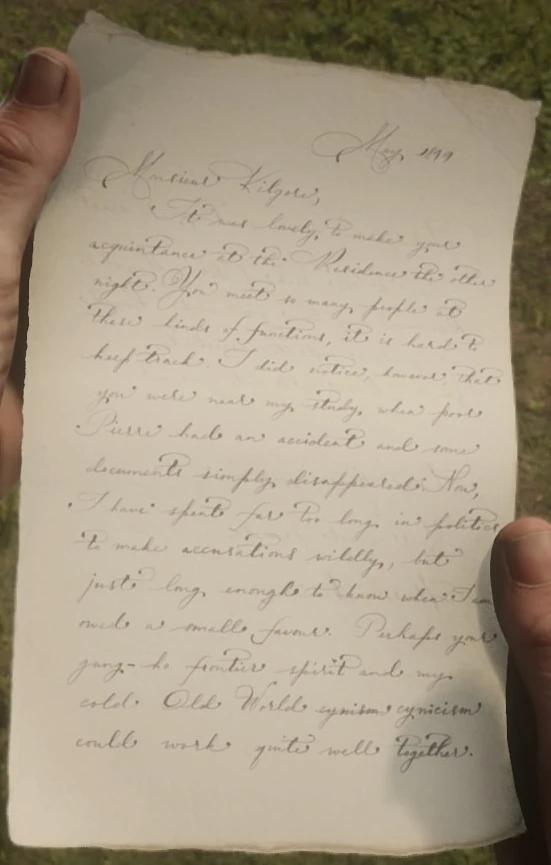 May, 1899
Monsieur Kilgore,
It was lovely, to make your
acquintance at the Residence the other
night. You meet so many, people at
these kinds of functions, it is hard to
keep track. I did notice, however, that
you were near my, study, when poor
Pierre had an accident and some
documents simply, disappeared. Now,
I have spent far too long in politics
to make accusations wildly, but
just long enough to know when I am
owed a small favour. Perhaps your
gung-ho frontier spirit and my
cold Old World cynism cynicism
could work quite well together.